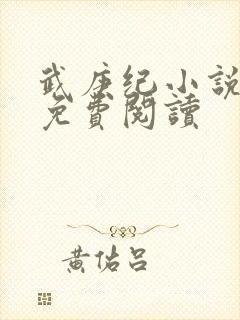 武庚纪小説
免費閱讀
黃佑呂